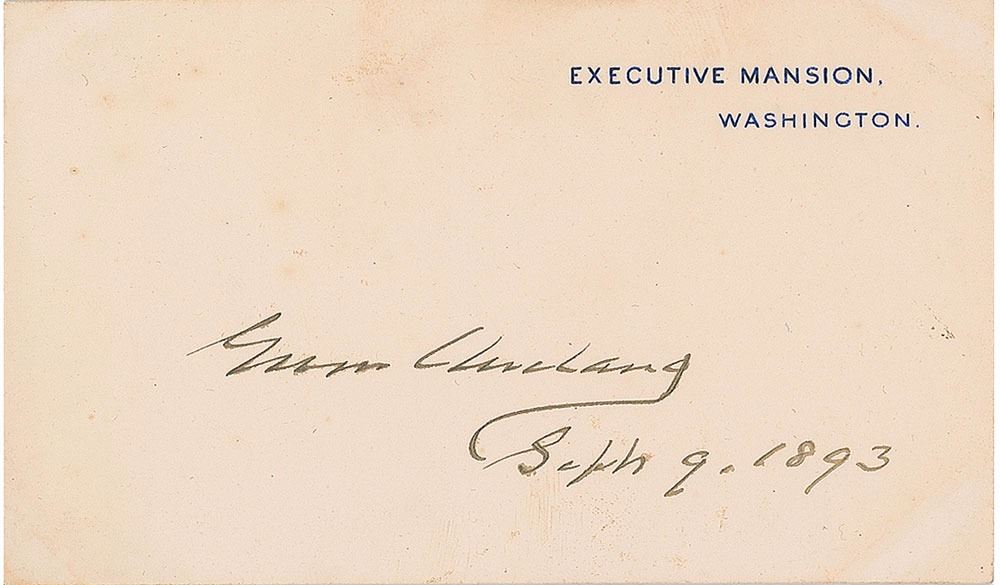 EXECUTIVE MANSION,
WASHINGTON.
Grover Cleveland
Sept 9. 1893